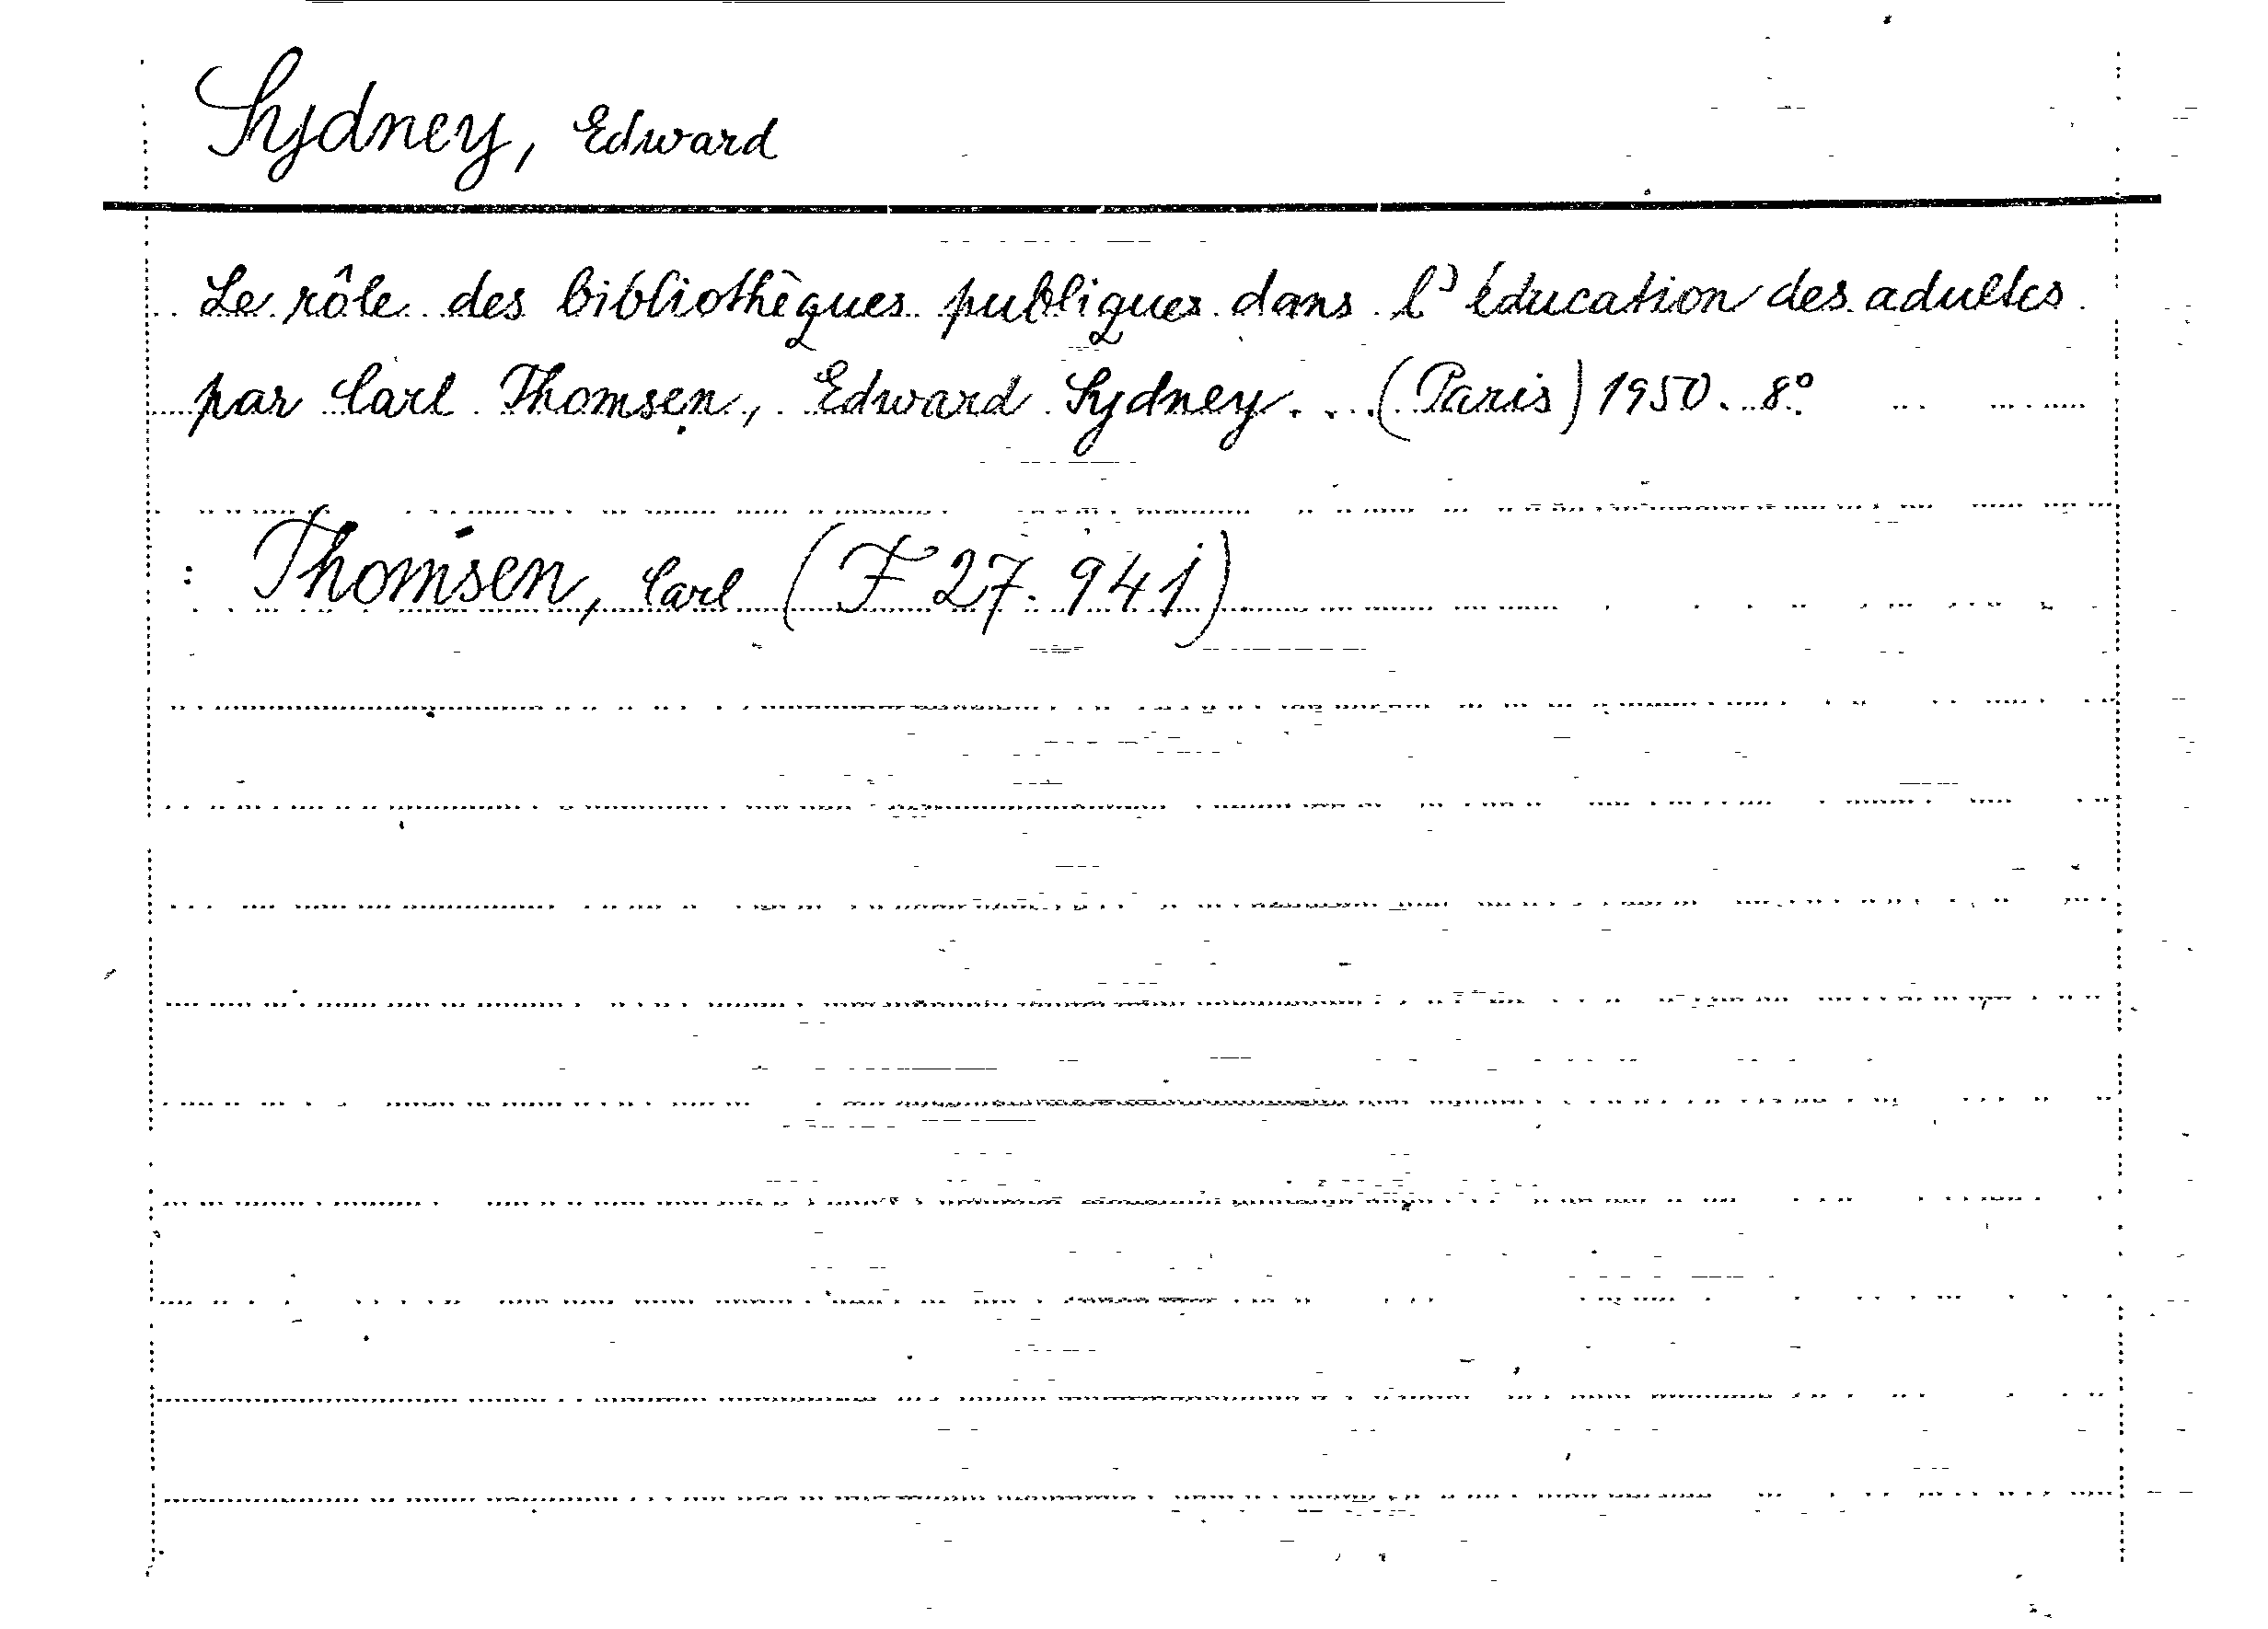 Sydney, Edward
Le rôle des bibliothèques publiques dans l'éducation des adultes
par Carl Thomsen, Edward Sydney... (Paris) 1950. 8º
: Thomsen, Carl (F 27.941)